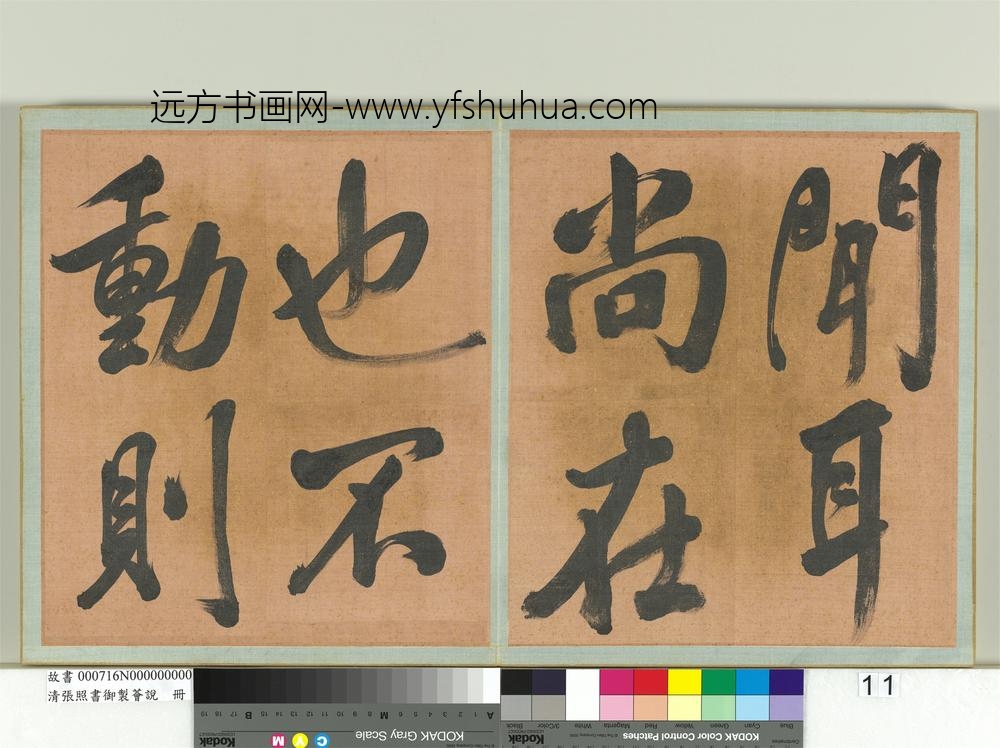 远方书画网-www.yfshuhua.com
聞耳
尚在
也不
動則
故書 000716N000000000
清張照書御製薈說 冊
19 18 17 16 15 B 14 13 12 11 10 9 8 M 7 6 5 4 3 2 1 A
Kodak
M Y C
KODAK Gray Scale
Black 3/Color White Magenta Red Yellow Green Cyan Blue
Kodak
KODAK Color Control Patches
11